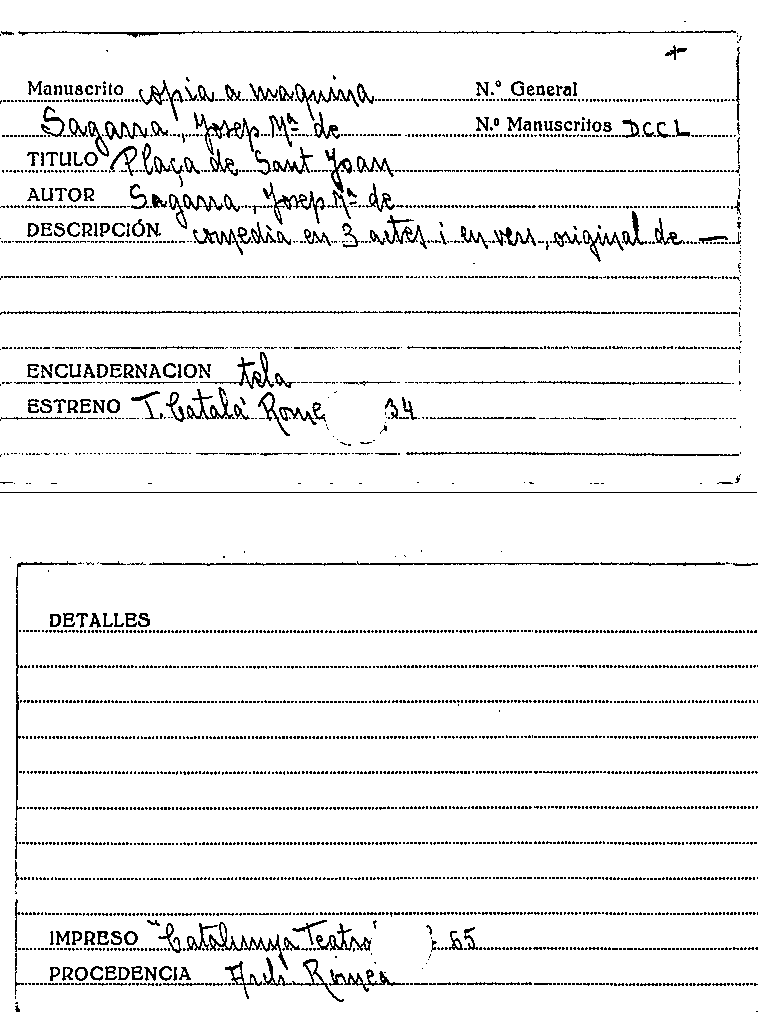 +
Manuscrito copia a maquina N.º General
Sagarra, Josep Mª de N.º Manuscritos DCCL
TITULO Plaça de Sant Joan
AUTOR Sagarra, Josep Mª de
DESCRIPCIÓN comedia en 3 actes i en vers, original de —
ENCUADERNACION tela
ESTRENO T. Català Rome 34
DETALLES
IMPRESO "Catalunya Teatro" 65
PROCEDENCIA Romea